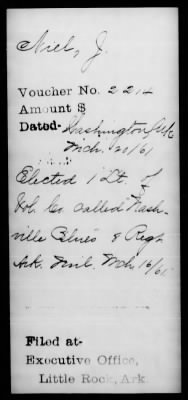 Niel, J.
Voucher No. 2214
Amount $
Dated- Washington, Ark
Mch. 21/61
Elected 1 Lt. of
Vol. Co. called Nash-
ville Blues 8 Regt
Ark. Mil. Mch 16/61
Filed at-
Executive Office,
Little Rock, Ark.